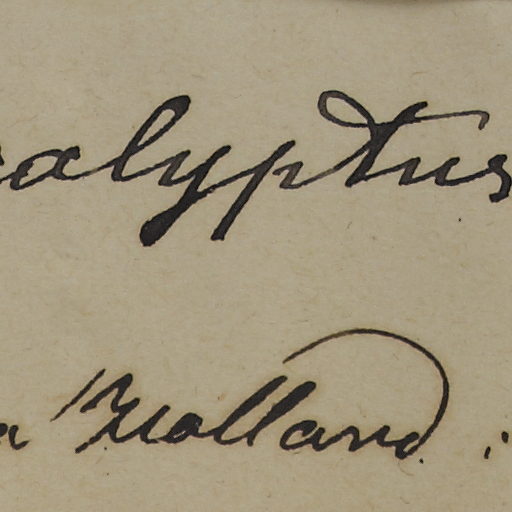 calyptus
a Holland.